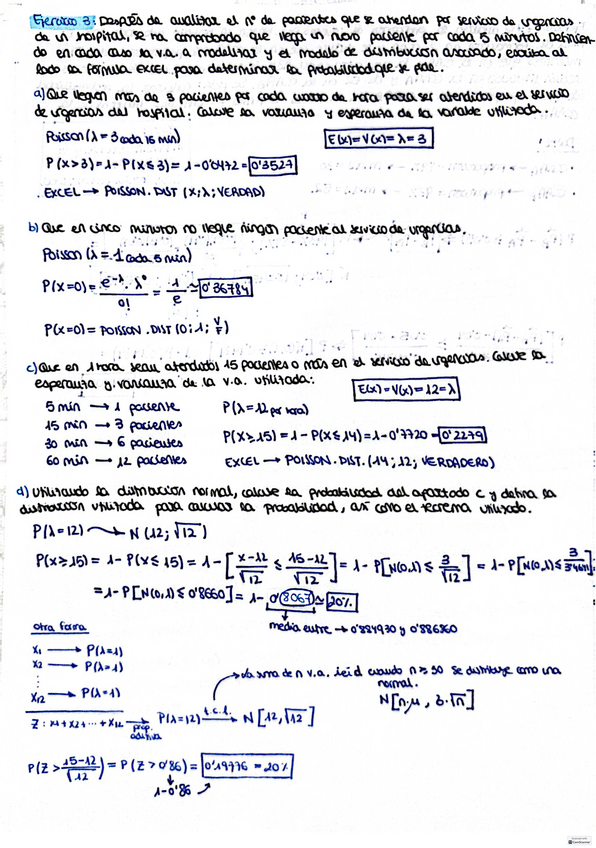 Ejercicio 3: Después de analizar el nº de pacientes que se atienden por servicio de urgencias
de un hospital, se ha comprobado que llega un nuevo paciente por cada 5 minutos. Definien-
do en cada caso la v.a. a modelizar y el modelo de distribución asociado, escriba al
lado la fórmula EXCEL para determinar la probabilidad que se pide.
a) Que lleguen más de 3 pacientes por cada cuarto de hora para ser atendidos en el servicio
de urgencias del hospital. Calcule la varianza y esperanza de la variable utilizada.
Poisson (λ = 3 cada 15 min)
E(x) = V(x) = λ = 3
P(x>3) = 1 - P(x≤3) = 1 - 0'6472 = 0'3527
EXCEL → POISSON.DIST (x; λ; VERDAD)
b) Que en cinco minutos no llegue ningún paciente al servicio de urgencias.
Poisson (λ = 1 cada 5 min)
P(x=0) = e^-λ · λ^0 / 0! = 1/e ≈ 0'36784
P(x=0) = POISSON.DIST (0; 1; V/F)
c) Que en 1 hora sean atendidos 15 pacientes o más en el servicio de urgencias. Calcule la
esperanza y varianza de la v.a. utilizada:
E(x) = V(x) = 12 = λ
5 min → 1 paciente P(λ = 12 por hora)
15 min → 3 pacientes
30 min → 6 pacientes P(x≥15) = 1 - P(x≤14) = 1 - 0'7720 = 0'2279
60 min → 12 pacientes EXCEL → POISSON.DIST. (14; 12; VERDADERO)
d) Utilizando la distribución normal, calcule la probabilidad del apartado c y defina la
distribución utilizada para calcular la probabilidad, así como el teorema utilizado.
P(λ=12) → N(12; √12)
P(x≥15) = 1 - P(x≤15) = 1 - [x-12/√12 ≤ 15-12/√12] = 1 - P[N(0,1) ≤ 3/√12] = 1 - P[N(0,1) ≤ 3/3'4641]
= 1 - P[N(0,1) ≤ 0'8660] = 1 - 0'8067 ≈ 20%
media entre → 0'884930 y 0'886860
otra forma
x1 → P(λ=1)
x2 → P(λ=1)
⋮
x12 → P(λ=1)
la suma de n v.a. i.e.i.d cuando n ≥ 30 se distribuye como una
normal.
N[n·μ, σ·√n]
Z: x1+x2+···+x12 → prop. aditiva P(λ=12) t.c.l. → N[12, √12]
P(Z > 15-12/√12) = P(Z > 0'86) = 0'19776 = 20%
1-0'86